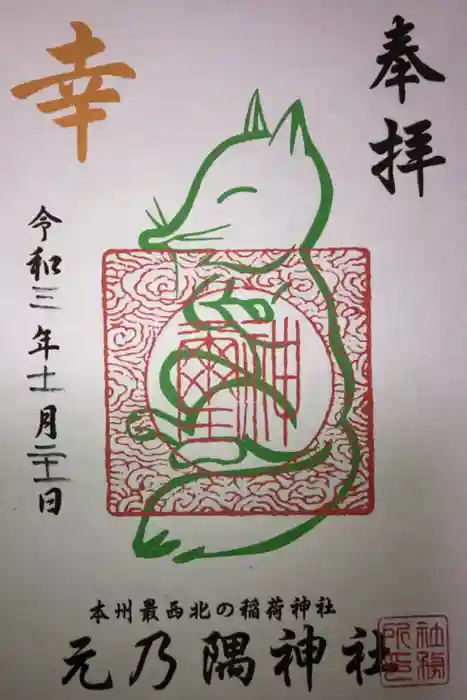 奉拝
幸
令和三年十一月二十一日
神璽
本州最西北の稲荷神社
元乃隅神社
社務
所印